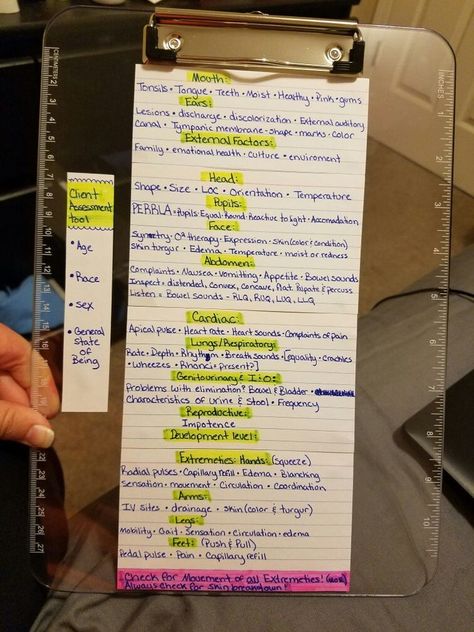 Client
Assessment
Tool
• Age
• Race
• Sex
• General
State
of
Being
Mouth:
Tonsils • Tongue • Teeth • Moist • Healthy • Pink • gums
Ears:
Lesions • discharge • discolorization • External auditory
Canal • Tympanic membrane • shape • marks • color
External Factors:
Family • emotional health • culture • enviroment
Head:
Shape • Size • LOC • Orientation • Temperature
Pupils:
PERRLA = Pupils • Equal • Round • Reactive to light • Accomodation
Face:
Symmetry • O² therapy • Expression • Skin (color & condition)
Skin turgur • Edema • Temperature • moist or redness
Abdomen:
Complaints • Nausea • Vomitting • Appetite • Bowel sounds
Inspect = distended, convex, concave, flat. Palpate & percuss
Listen = Bowel sounds - RLQ, RUQ, LUQ, LLQ
Cardiac:
Apical pulse • Heart rate • Heart sounds • Complaints of pain
Lungs/Respiratory:
Rate • Depth • Rhythm • Breath sounds • [equality • crackles
• wheezes • Rhonci • present?]
Genitourinary & I:O:
Problems with elimination? Bowel & Bladder •
Characteristics of urine & Stool • Frequency
Reproductive:
Impotence
Development level:
Extremeties: Hands: (squeeze)
Radial pulses • Capillary refill • Edema • Blanching
Sensation • movement • Circulation • Coordination
Arms:
IV sites • drainage • skin (color & turgur)
Legs:
Mobility • Gait • Sensation • Circulation • edema
Feet: (Push & Pull)
Pedal pulse • Pain • Capillary refill
Check for Movement of all Extremeties!
Always check for skin breakdown!